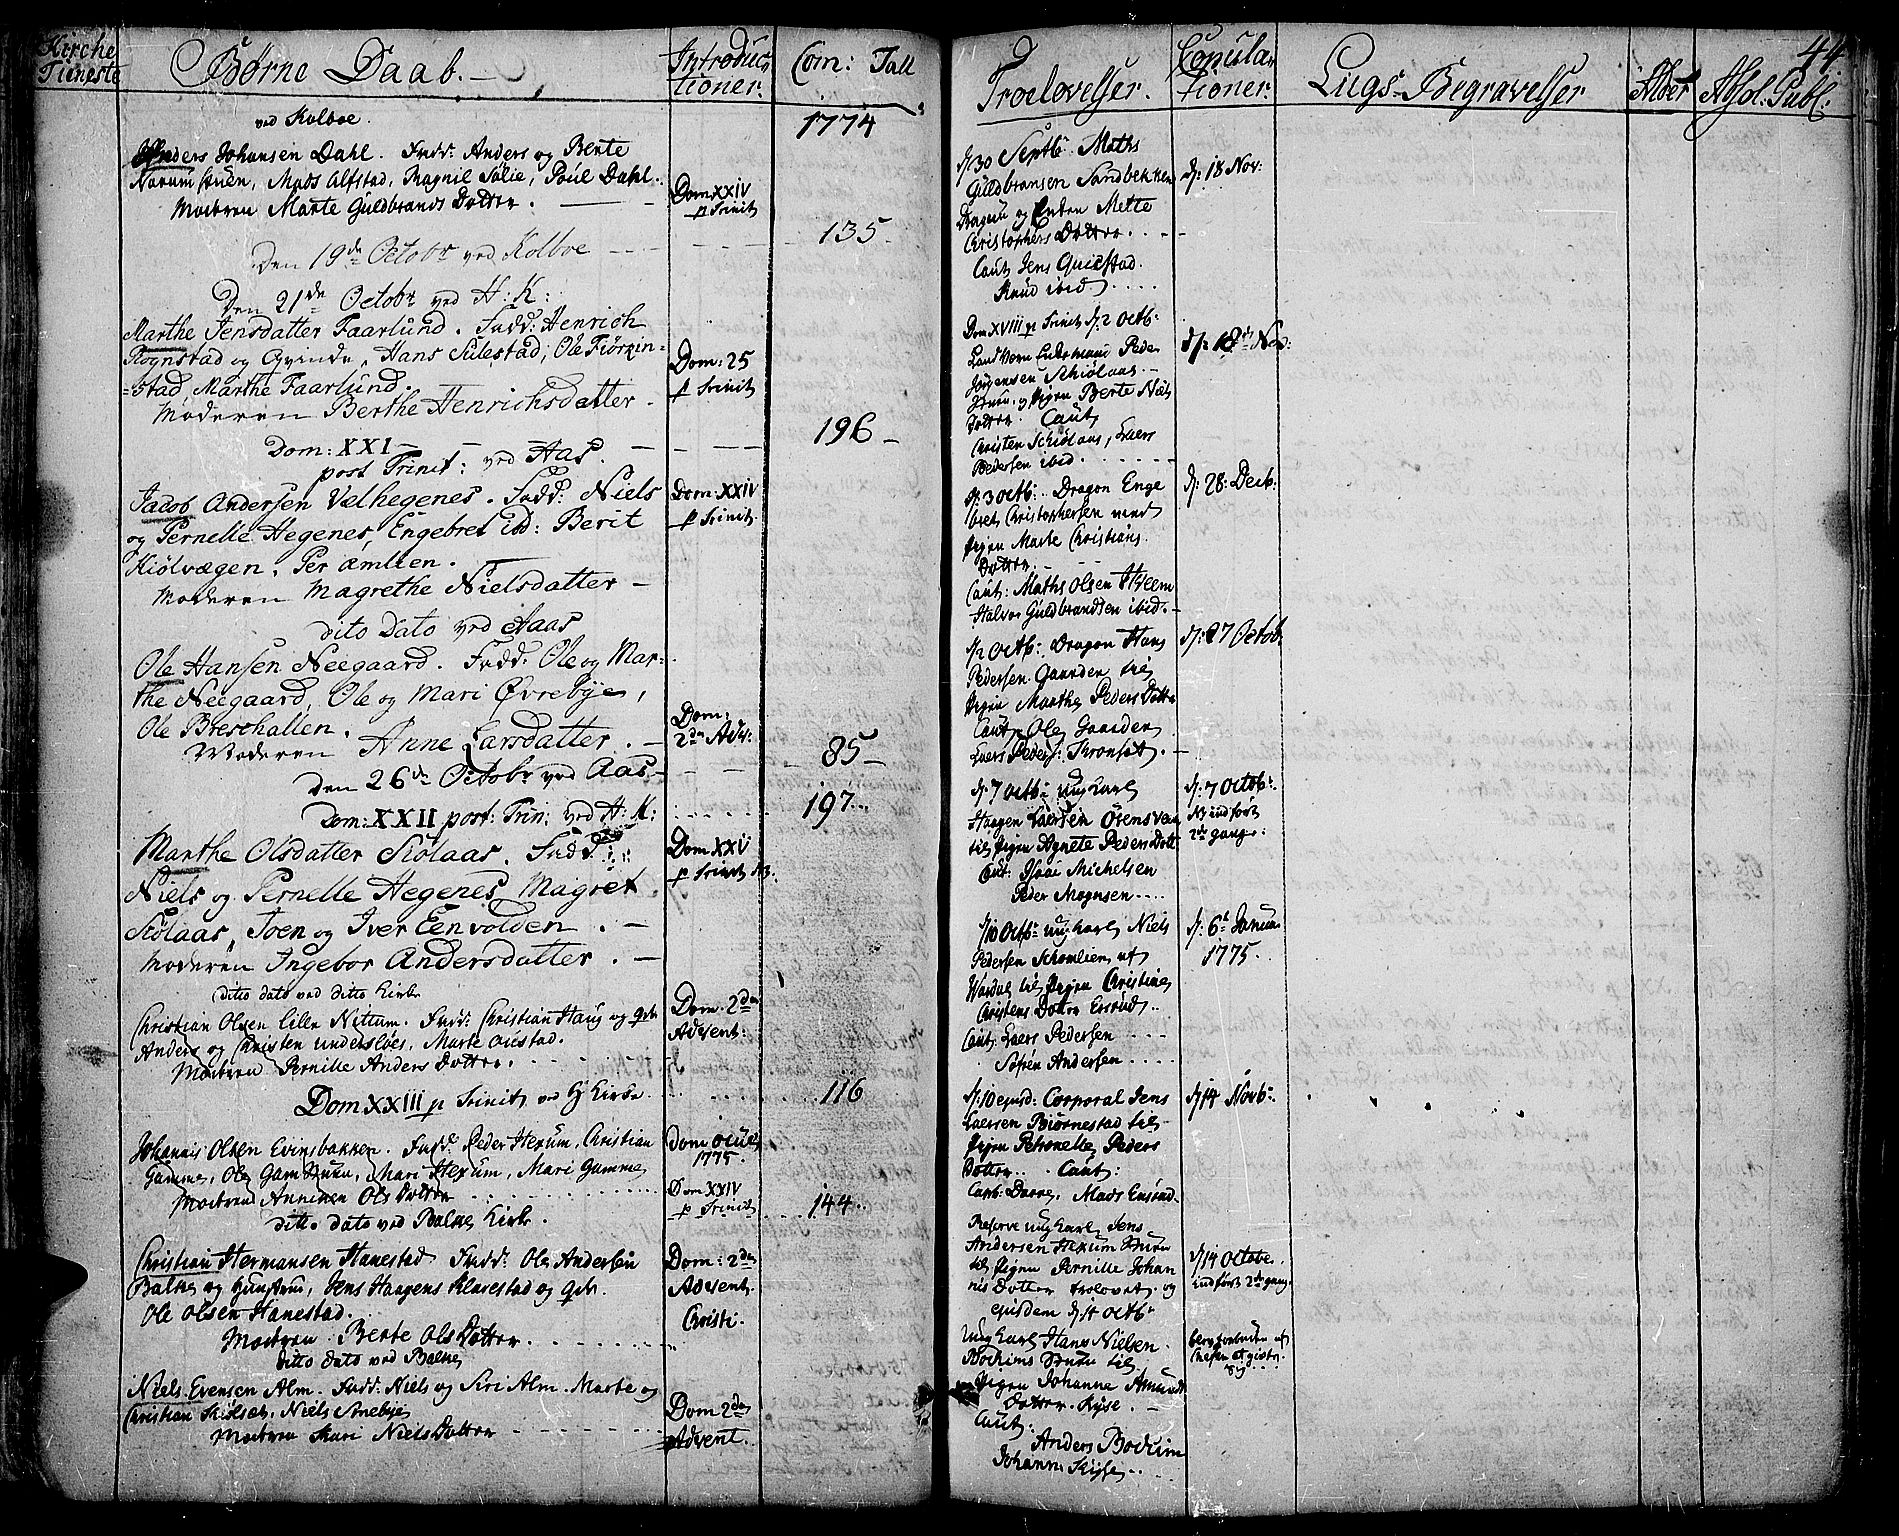 Kirche
Tieneste
Børne Daab.
Introduc-
tioner:
Com: Tall
ved Kolboe.
1774
Anders Johansen Dahl. Fadd: Anders og Berte
Narumstuen, Mads Alfstad, Ragnil Sølie, Poul Dahl.
Moderen Marte Guldbrands Dotter.
Dom XXIV
p Trinit
135
Den 19de Octobr ved Kolboe
Den 21de Octobr ved H: K:
Marthe Jensdatter Faarlund. Fadd: Henrich
Rognstad og Qvinde, Hans Sulestad, Ole Fiørkin-
stad, Marthe Faarlund.
Moderen Berthe Henrichsdatter.
Dom: 25
p Trinit
196
Dom: XXI
post Trinit: ved Aas.
Jacob Andersen Velhegenes. Fadd: Niels
og Pernelle Hegenes, Engebret ibd: Berit
Kiølvægen, Per Æmlien.
Moderen Magrethe Nielsdatter
Dom: XXIV
p Trinit.
dito Dato ved Aaas
Ole Hansen Neegaard. Fadd: Ole og Mar-
the Neegaard, Ole og Mari Øvrebye,
Ole Breschallen.
Moderen Anne Larsdatter.
Dom:
2den Adv:
85
Den 26de Octobr ved Aas
197
Dom: XXII post: Trin: ved H: K:
Marthe Olsdatter Siølaas. Fadd:
Niels og Pernelle Hegenes, Magret
Siølaas, Joen og Iver Eenvolden.
Moderen Ingebor Andersdatter.
Dom XXV
p Trinit
ditto dato ved ditto Kirke
Christian Olsen Lille Nittum. Fadd: Christian Haug og Qvi.
Anders og Christen Undersløes, Marte
Moderen Pernille Anders Dotter.
Dom. 2den
Advent:
Dom XXIII p Trinit ved H Kirke.
116
Johannis Olsen Evinsbakken. Fadd: Peder Hexum, Christian
Gamme, Ole Gamstuen, Mari Hexum, Mari Gamme
Moderen Anniken Ols Dotter
Dom Oculi
1775.
Dom XXIV
p Trinit
144
ditto dato ved Balke Kirke.
Christian Hermansen Hanestad Fadd: Ole Andersen
Balke og Hustrue, Jens Haagens Klarestad og Qvi.
Ole Olsen Hanestad.
Moderen Berte Ols Dotter.
Dom: 2den
Advent.
Christi.
ditto dato ved Balke
Niels Evensen Alm. Fadd: Niels og Siri Alm. Marte og
Christian Skiølset, Niels Anebye
Moderen Mari Niels Dotter
Dom 2den
Advent.
44
Troelovelser.
Copula-
tioner:
Liigs-Begravelser
Alder
Absol: Publ:
d/30 Septb: Maths
Guldbransen Sandbekken
Dragun og Enken Mette
Christophers Dotter.
Caut Jens Quistad
Knud ibid
d/: 18 Nov:
Dom XVIII p Trinit d/2 Octb:
Landværn Peder
Jørgensen Skiølaas
og Pigen Berte Niels
Dotter. Caut
Christen Skiølaas, Laers
Pedersen ibid.
d/: 18de Nov:
d/: 3 Octb: Dragon Enge
bret Christophersen med
Pigen Marte Christians
Dotter.
Caut: Maths Olsen Hveem
Halvor Guldbrandsen ibid.
d/: 28: Decb:
d/2 Octb: Dragon Hans
Pedersen Gaarder til
Pigen Marthe Peders Dotter
Caut Ole Gaarder
Laers Peders: Thronset.
d/: 27 Octob:
d/: 7 Octb: Ung karl
Haagen Laersen Ørensveen
til Pigen Agnete Peders Dott
Caut: Isaai Michelsen
Peder Mognsen
d/: 7 Octb:
2de gang:
d/10 Octb: ung karl Niels
Pedersen Schomlien af
Wardal til Pigen Christine
Christens Dotter Ersrud
Caut: Laers Pedersen
Søfren Andersen
d/: 6te Janua
1775.
d/: 10 ejusd: Corporal Jens
Laersen Biørnestad til
Pigen Petronelle Peders
Dotter. Caut:
Carb: Dorre, Mads Enstad
d/14 Novb:
Reserve ung karl Jens
Andersen Hexum
til Pigen Pernille Johan
nis Dotter trolovet og
ejusdem d/14 Octb:
d/14 Octobr.
indført 2de gang
Ung karl Hans Nielsen
Bodums til
Pigen Johanne Amund
Dotter Kyse.
Caut:
Anders Bodum
Johann: Kyse